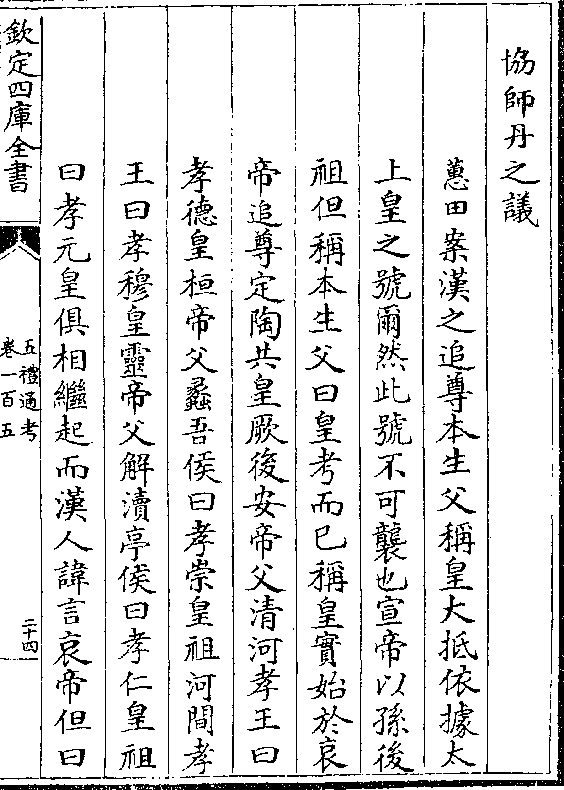 協師丹之議
蕙田案漢之追尊本生父稱皇大抵依據太
上皇之號爾然此號不可襲也宣帝以孫後
祖但稱本生父曰皇考而已稱皇實始於哀
帝追尊定陶共皇厥後安帝父清河孝王曰
孝德皇桓帝父蠡吾侯曰孝崇皇祖河間孝
王曰孝穆皇靈帝父解瀆亭侯曰孝仁皇祖
曰孝元皇俱相繼起而漢人諱言哀帝但曰
欽定四庫全書
五禮通考
卷一百五
二十四